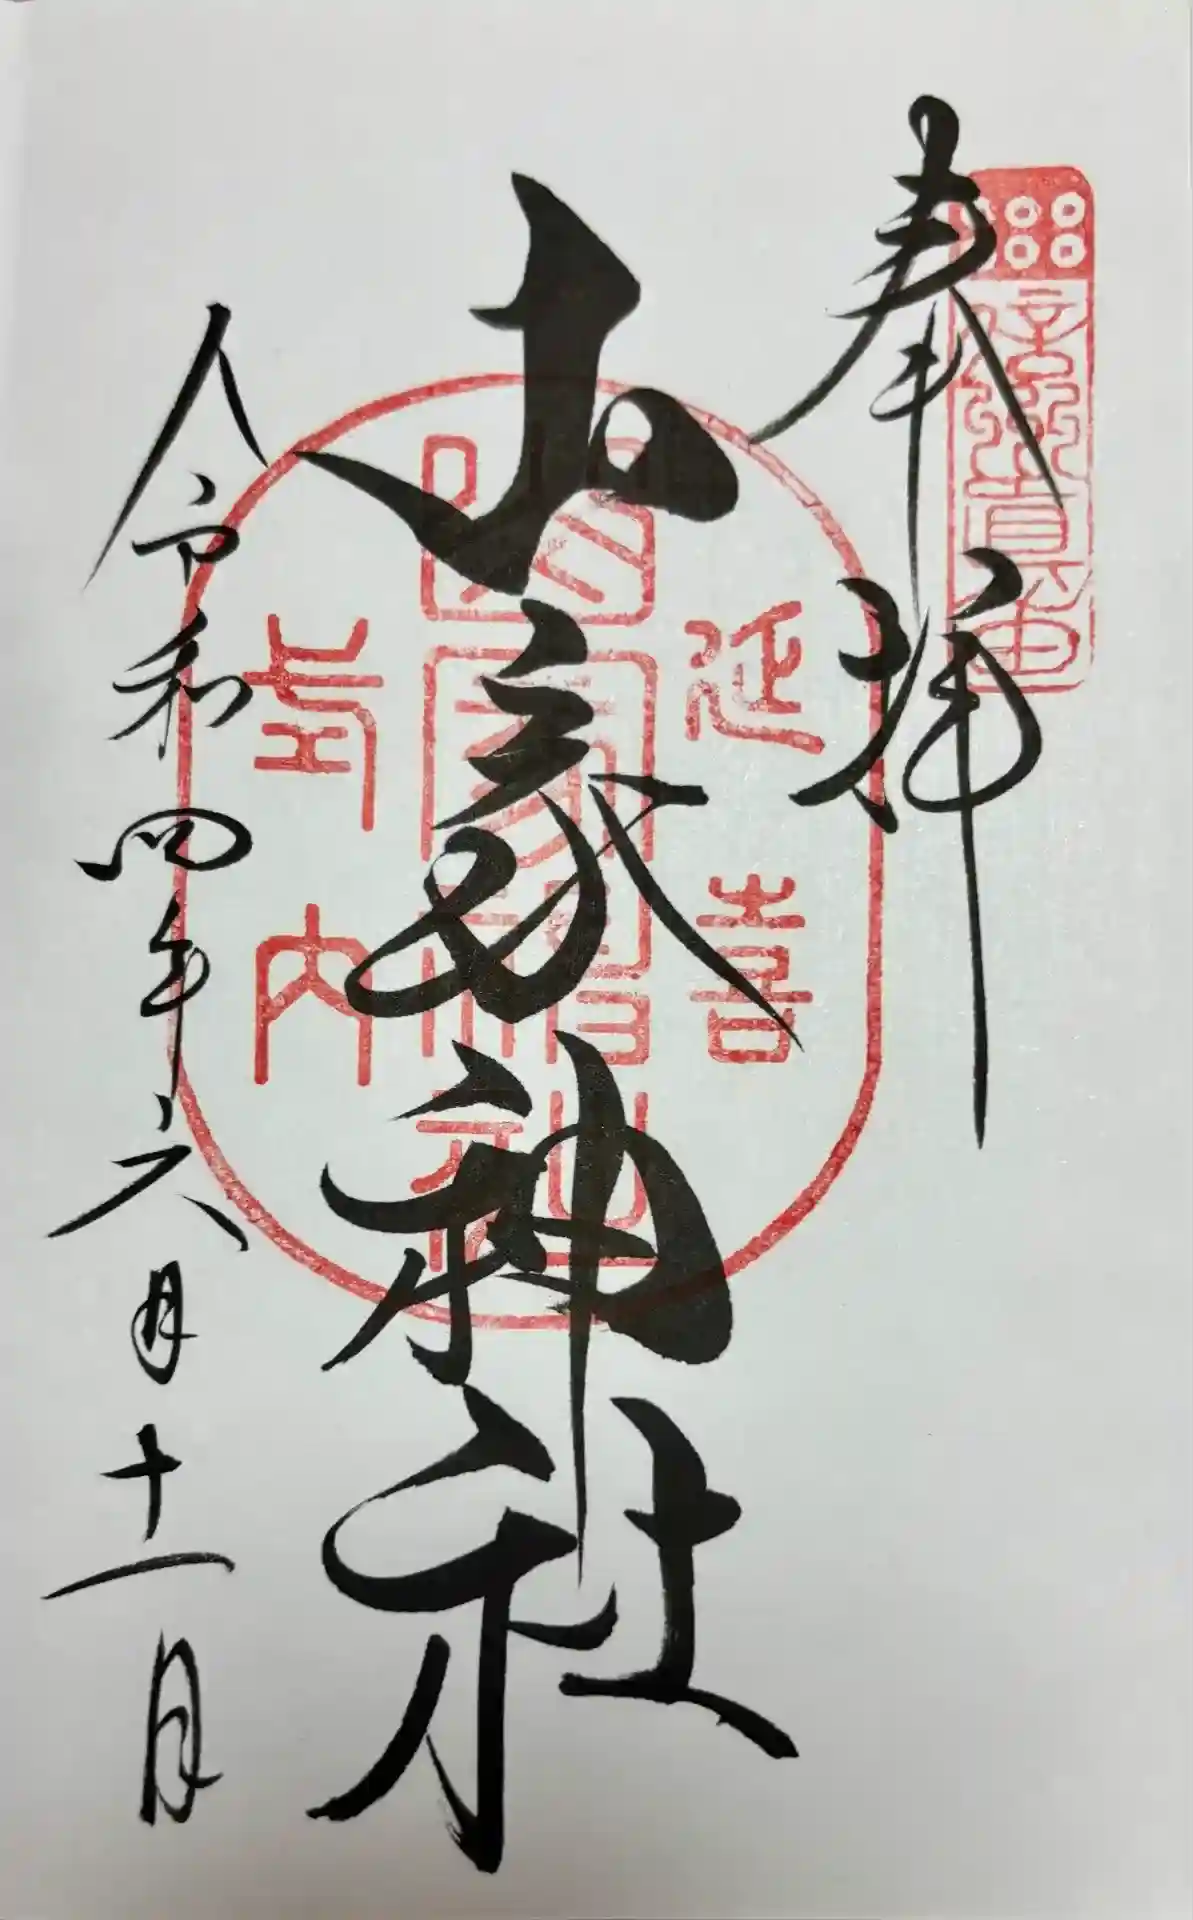 奉拝
山家神社
令和四年六月十一日
延喜
式内
山家神社
信州真田